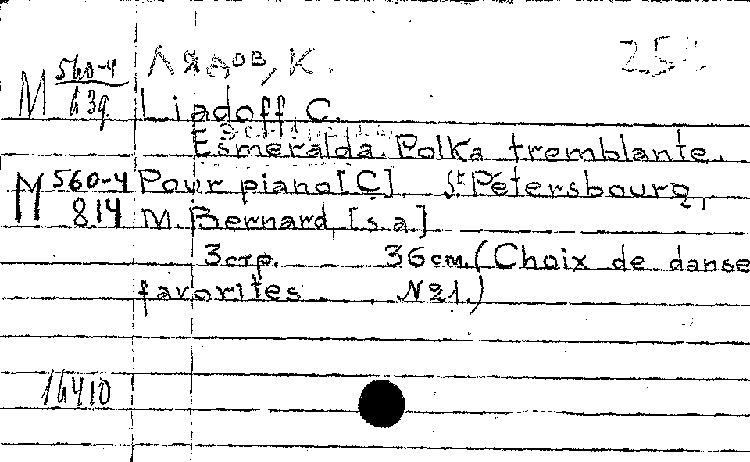 М 560-4 Лядов, К.
63g Liadoff C.
Esmeralda. Polka tremblante.
М 560-4 Pour piano [C]. St Pétersbourg,
814 M. Bernard [s.a.]
3 стр. 36 см. (Choix de danse
favorites №1.)
16410